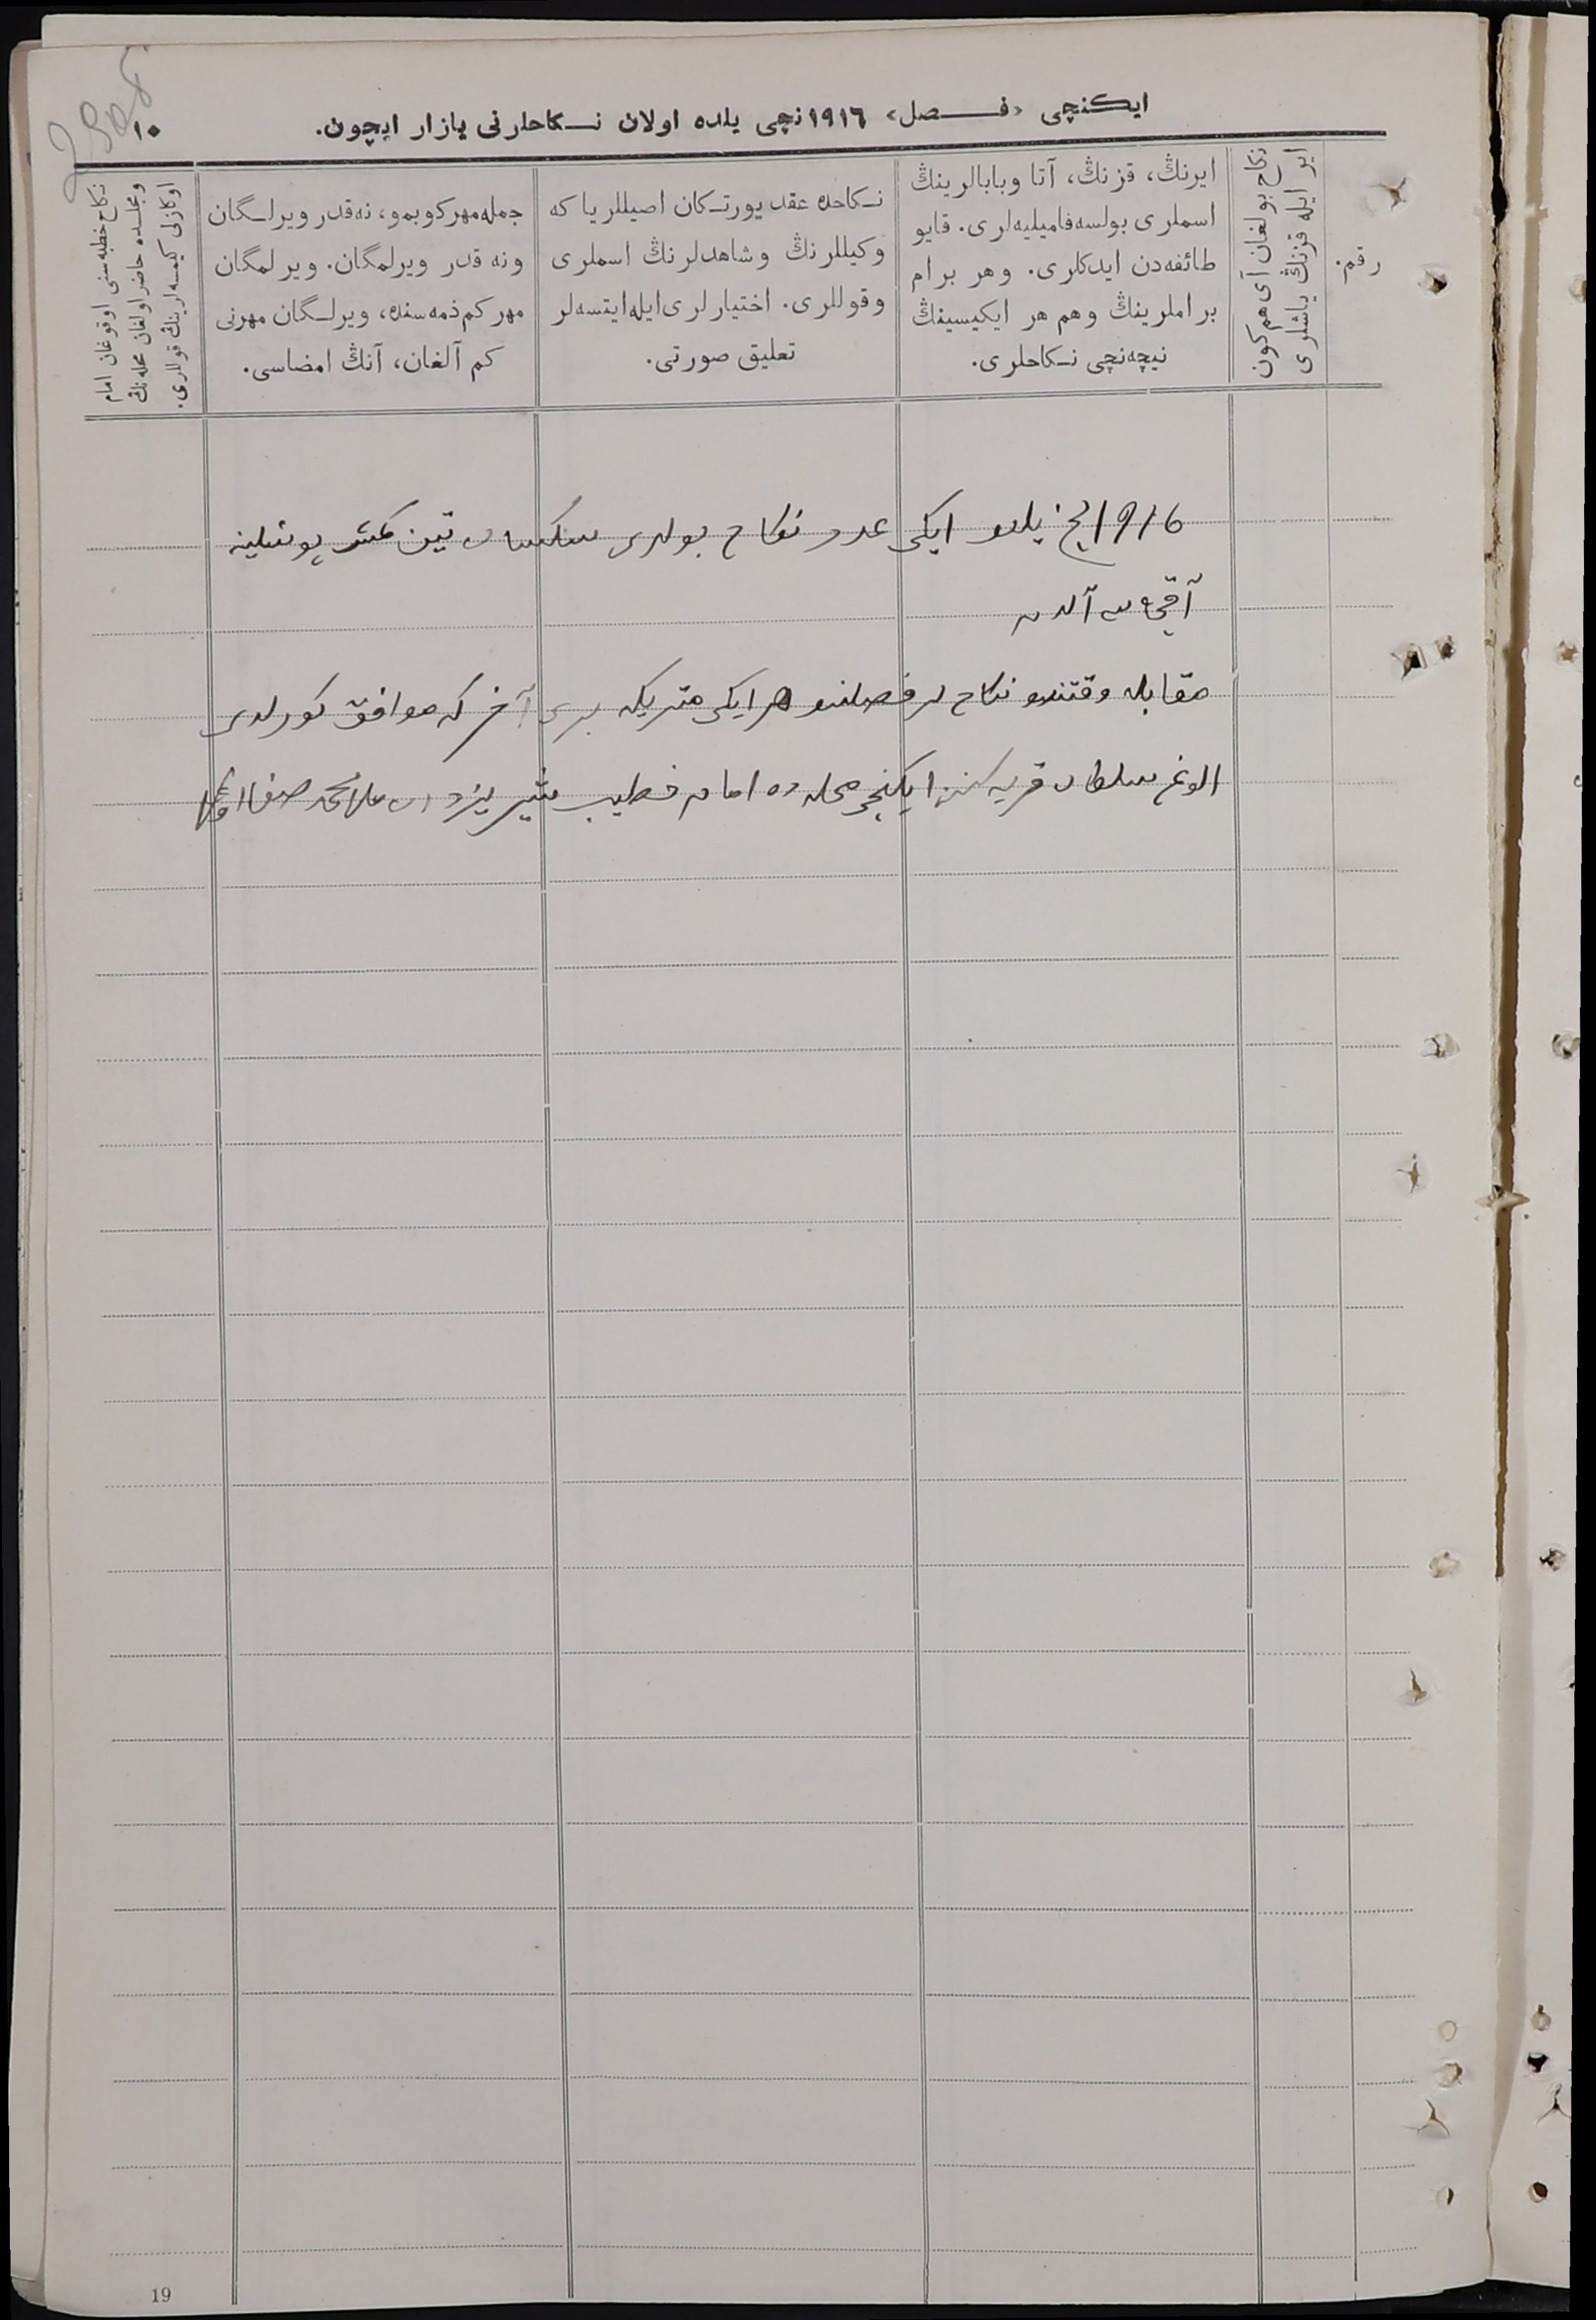 ایكنچی «فـصل» ١٩١٦نچی یلده اولان نـكاحلرنی یازار ایچون.
١٠
رقم.
نكاح بولغان آی هم كون
ایر ایله قزنڭ یاشلری
ایرنڭ، قزنڭ، آتا وبابالرینڭ
اسملری بولسه‌فامیلیه‌لری. قایو
طائفه‌دن ایدكلری. وهر برام
براملرینڭ وهم هر ایكیسینڭ
نیچه‌نچی نـكاحلری.
نـكاحده عقد یورتـكان اصیللریا كه
وكیللرنڭ وشاهدلرنڭ اسملری
وقوللری. اختیارلری‌ایله‌ایتسه‌لر
تعلیق صورتی.
جمله‌مهركوبمو، نه‌قدر ویرلـگان
ونه قدر ویرلمگان. ویرلمگان
مهر كم‌ذمه‌سنده، ویرلـگان مهرنی
كم آلغان، آنڭ امضاسی.
نكاح خطبه‌سنی اوقوغان امام
ومجلسده حاضر اولغان محله‌نڭ
اوكازلی كیمسه‌لرینڭ قوللری.
1916نچی یلده ایكی عدد نكاح بولدی سكسان تین پوشلینه
آقچه‌سی آلدم
مقابله وقتنده نكاح لر فصلنده هر ایكی متریكه بری آخر كه موافق كورلدی
الوغ سلطان قریه‌سنڭ ایكنچی محله ده امام خطیب ملامحمد صفا اوغلی
19